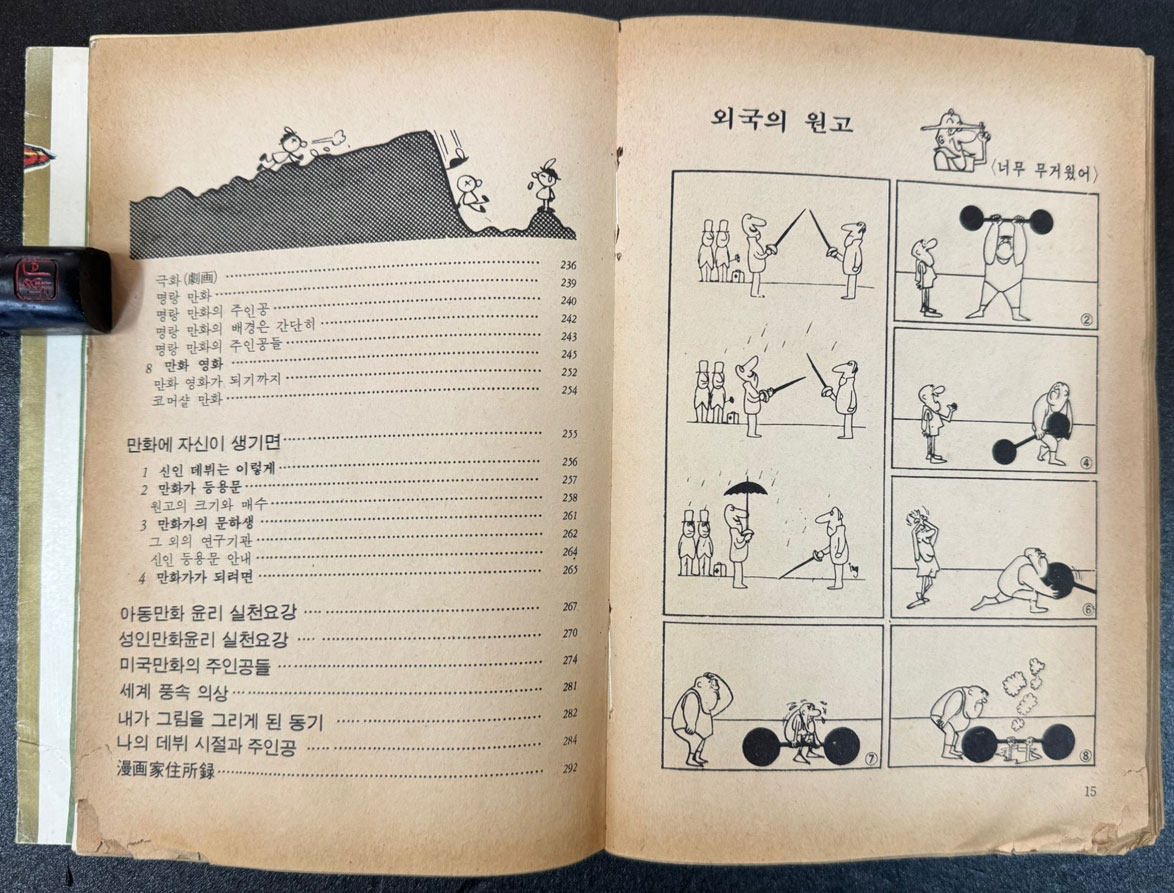 극화(劇画) 236
명랑 만화 239
명랑 만화의 주인공 240
명랑 만화의 배경은 간단히 242
명랑 만화의 주인공들 243
8 만화 영화 245
만화 영화가 되기까지 252
코머샬 만화 254
만화에 자신이 생기면 255
1 신인 데뷔는 이렇게 256
2 만화가 등용문 257
원고의 크기와 매수 258
3 만화가의 문하생 261
그 외의 연구기관 262
신인 등용문 안내 264
4 만화가가 되려면 265
아동만화 윤리 실천요강 267
성인만화윤리 실천요강 270
미국만화의 주인공들 274
세계 풍속 의상 281
내가 그림을 그리게 된 동기 282
나의 데뷔 시절과 주인공 284
漫画家住所録 292
외국의 원고
〈너무 무거웠어〉
②
④
⑥
⑦
⑧
15